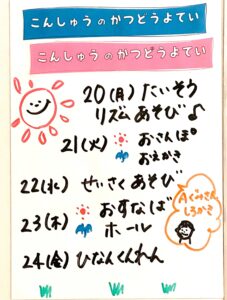 こんしゅうのかつどうよてい
こんしゅうのかつどうよてい
20(月)たいそう
リズムあそび♪
21(火)おさんぽ
おえかき
22(水)せいさくあそび
Aぐみさん
しろかき
23(木)おすなば
ホール
24(金)ひなんくんれん